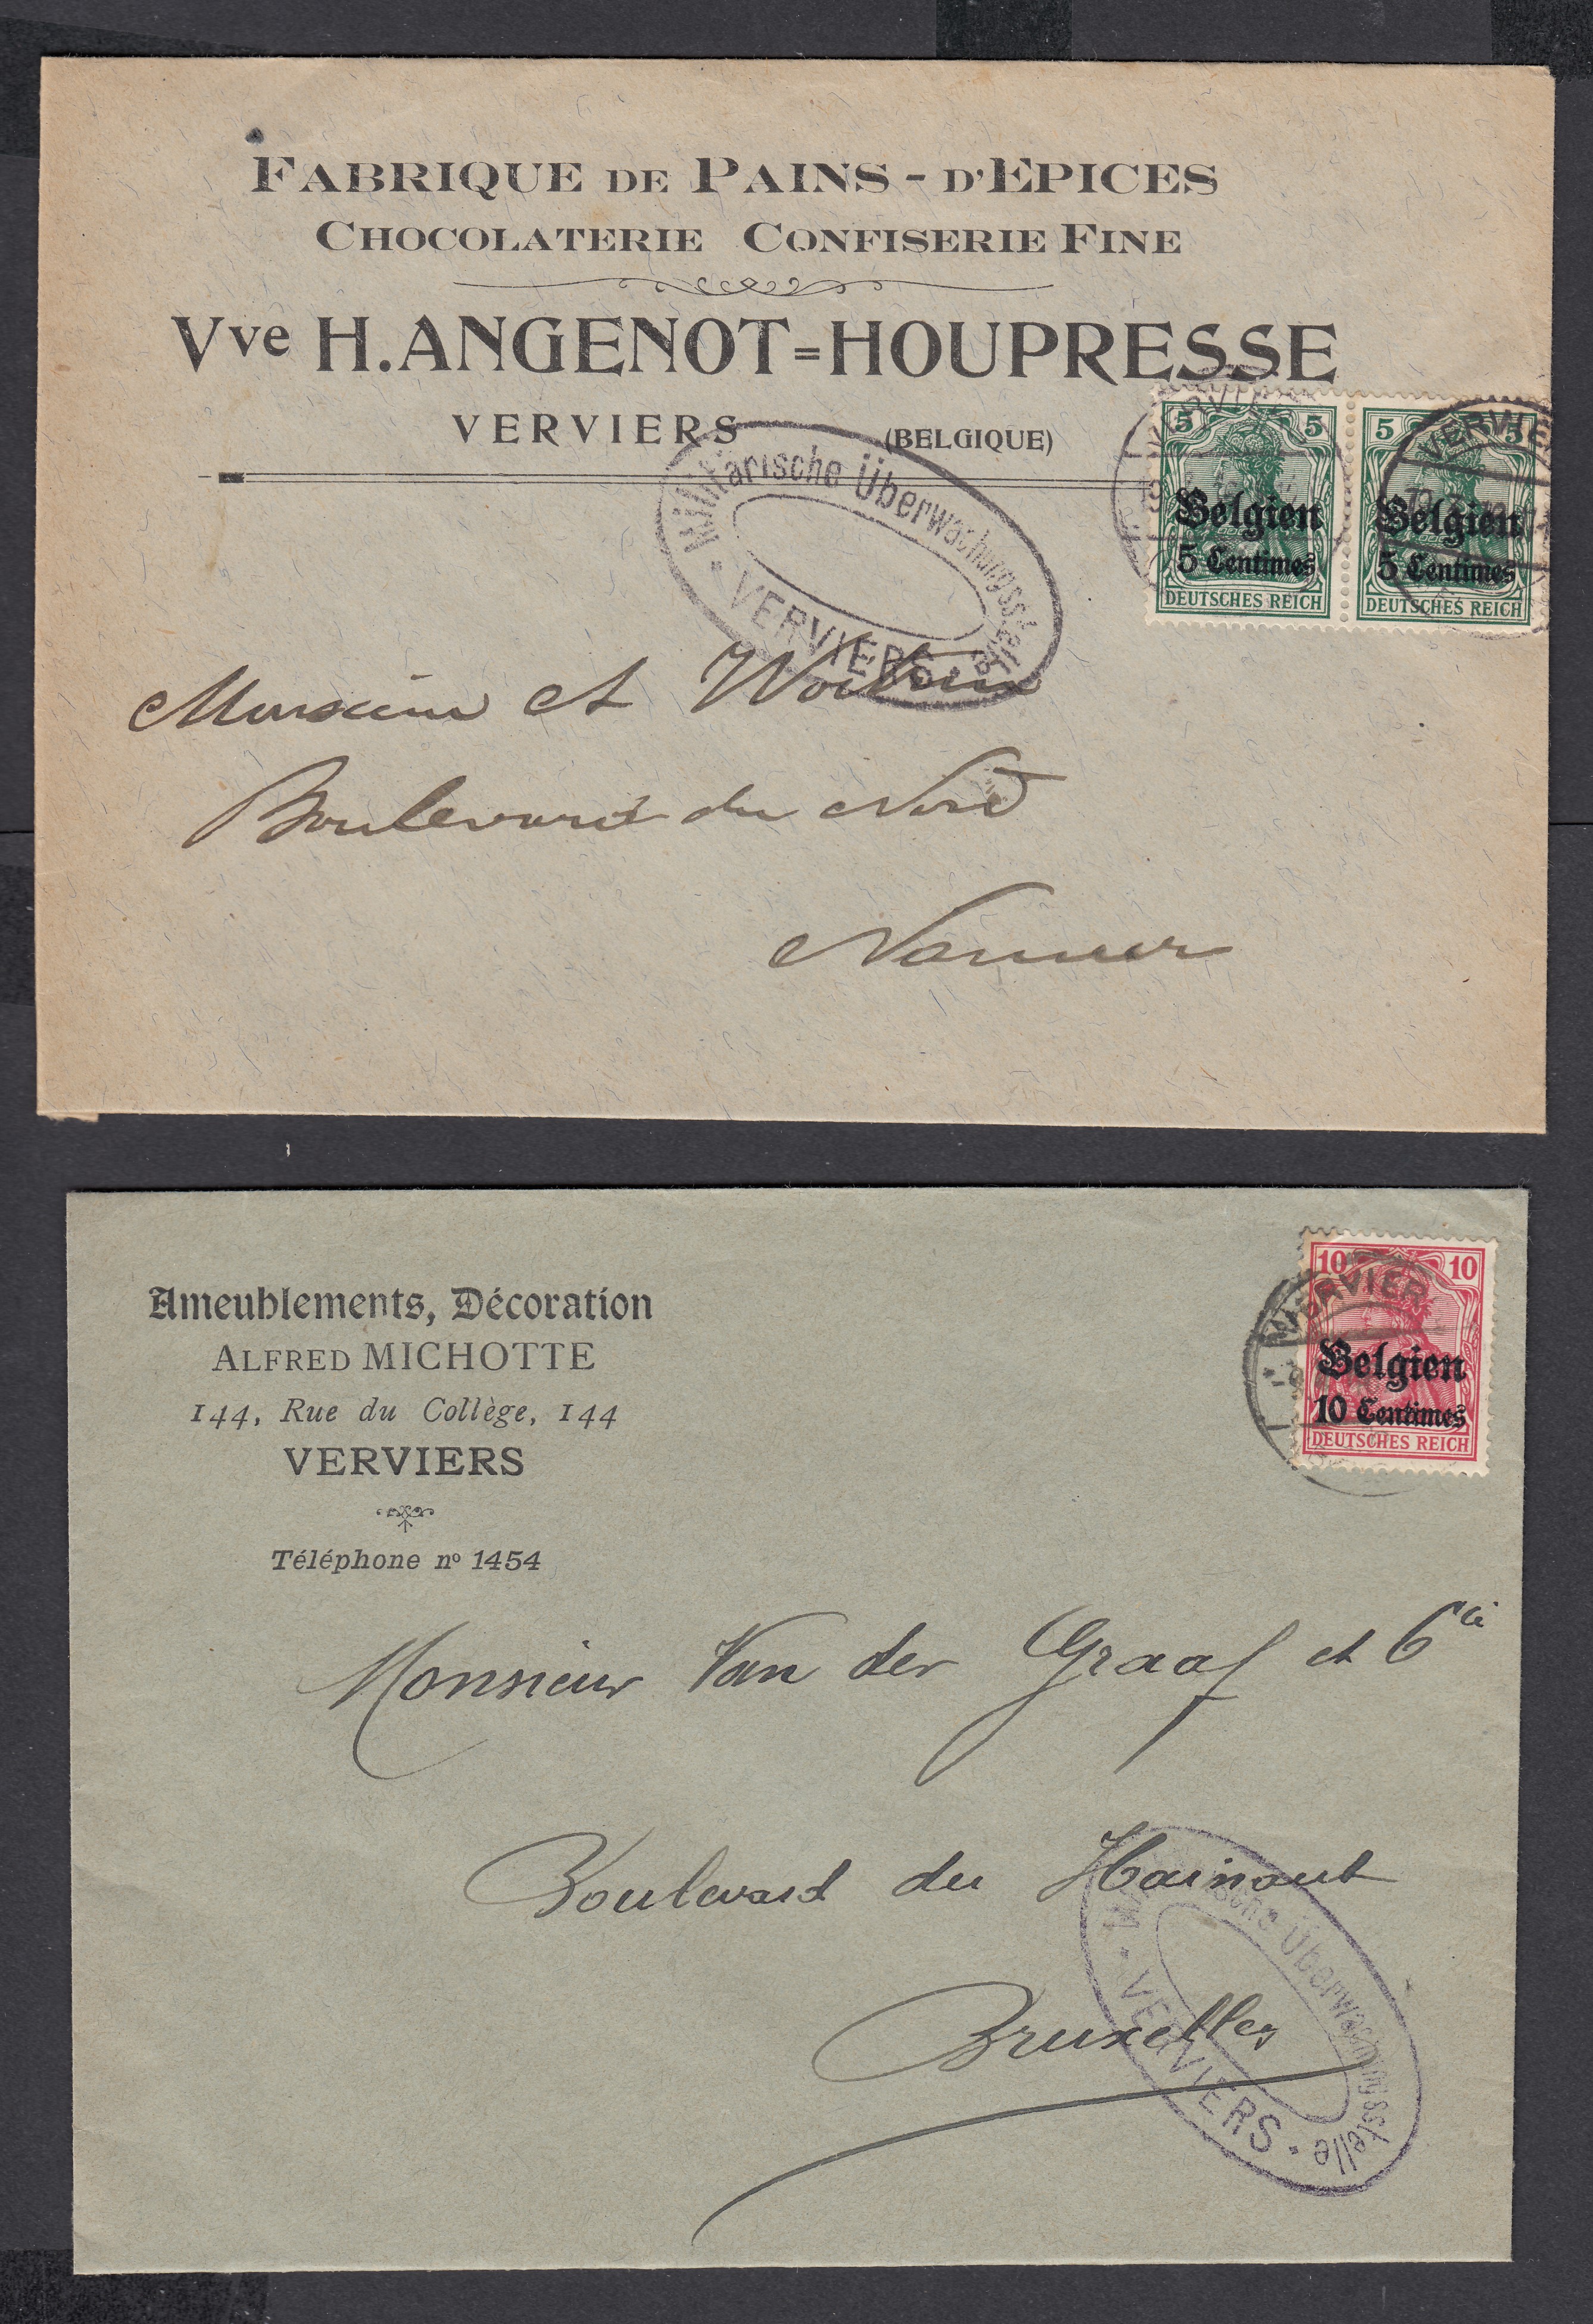 FABRIQUE DE PAINS - D'EPICES
CHOCOLATERIE CONFISERIE FINE
Vve H. ANGENOT=HOUPRESSE
VERVIERS (BELGIQUE)
Militärische Überwachungsstelle
* VERVIERS *
5 5
Belgien
5 Centimes
DEUTSCHES REICH
5 5
Belgien
5 Centimes
DEUTSCHES REICH
VERVIERS
VERVIERS
Monsieur A
Boulevard du Nord
Namur
Ameublements, Décoration
ALFRED MICHOTTE
144, Rue du Collège, 144
VERVIERS
Téléphone nº 1454
10 10
Belgien
10 Centimes
DEUTSCHES REICH
VERVIERS
Monsieur Van der Graaf et Cie
Boulevard du Hainaut
Bruxelles
Militärische Überwachungsstelle
* VERVIERS *